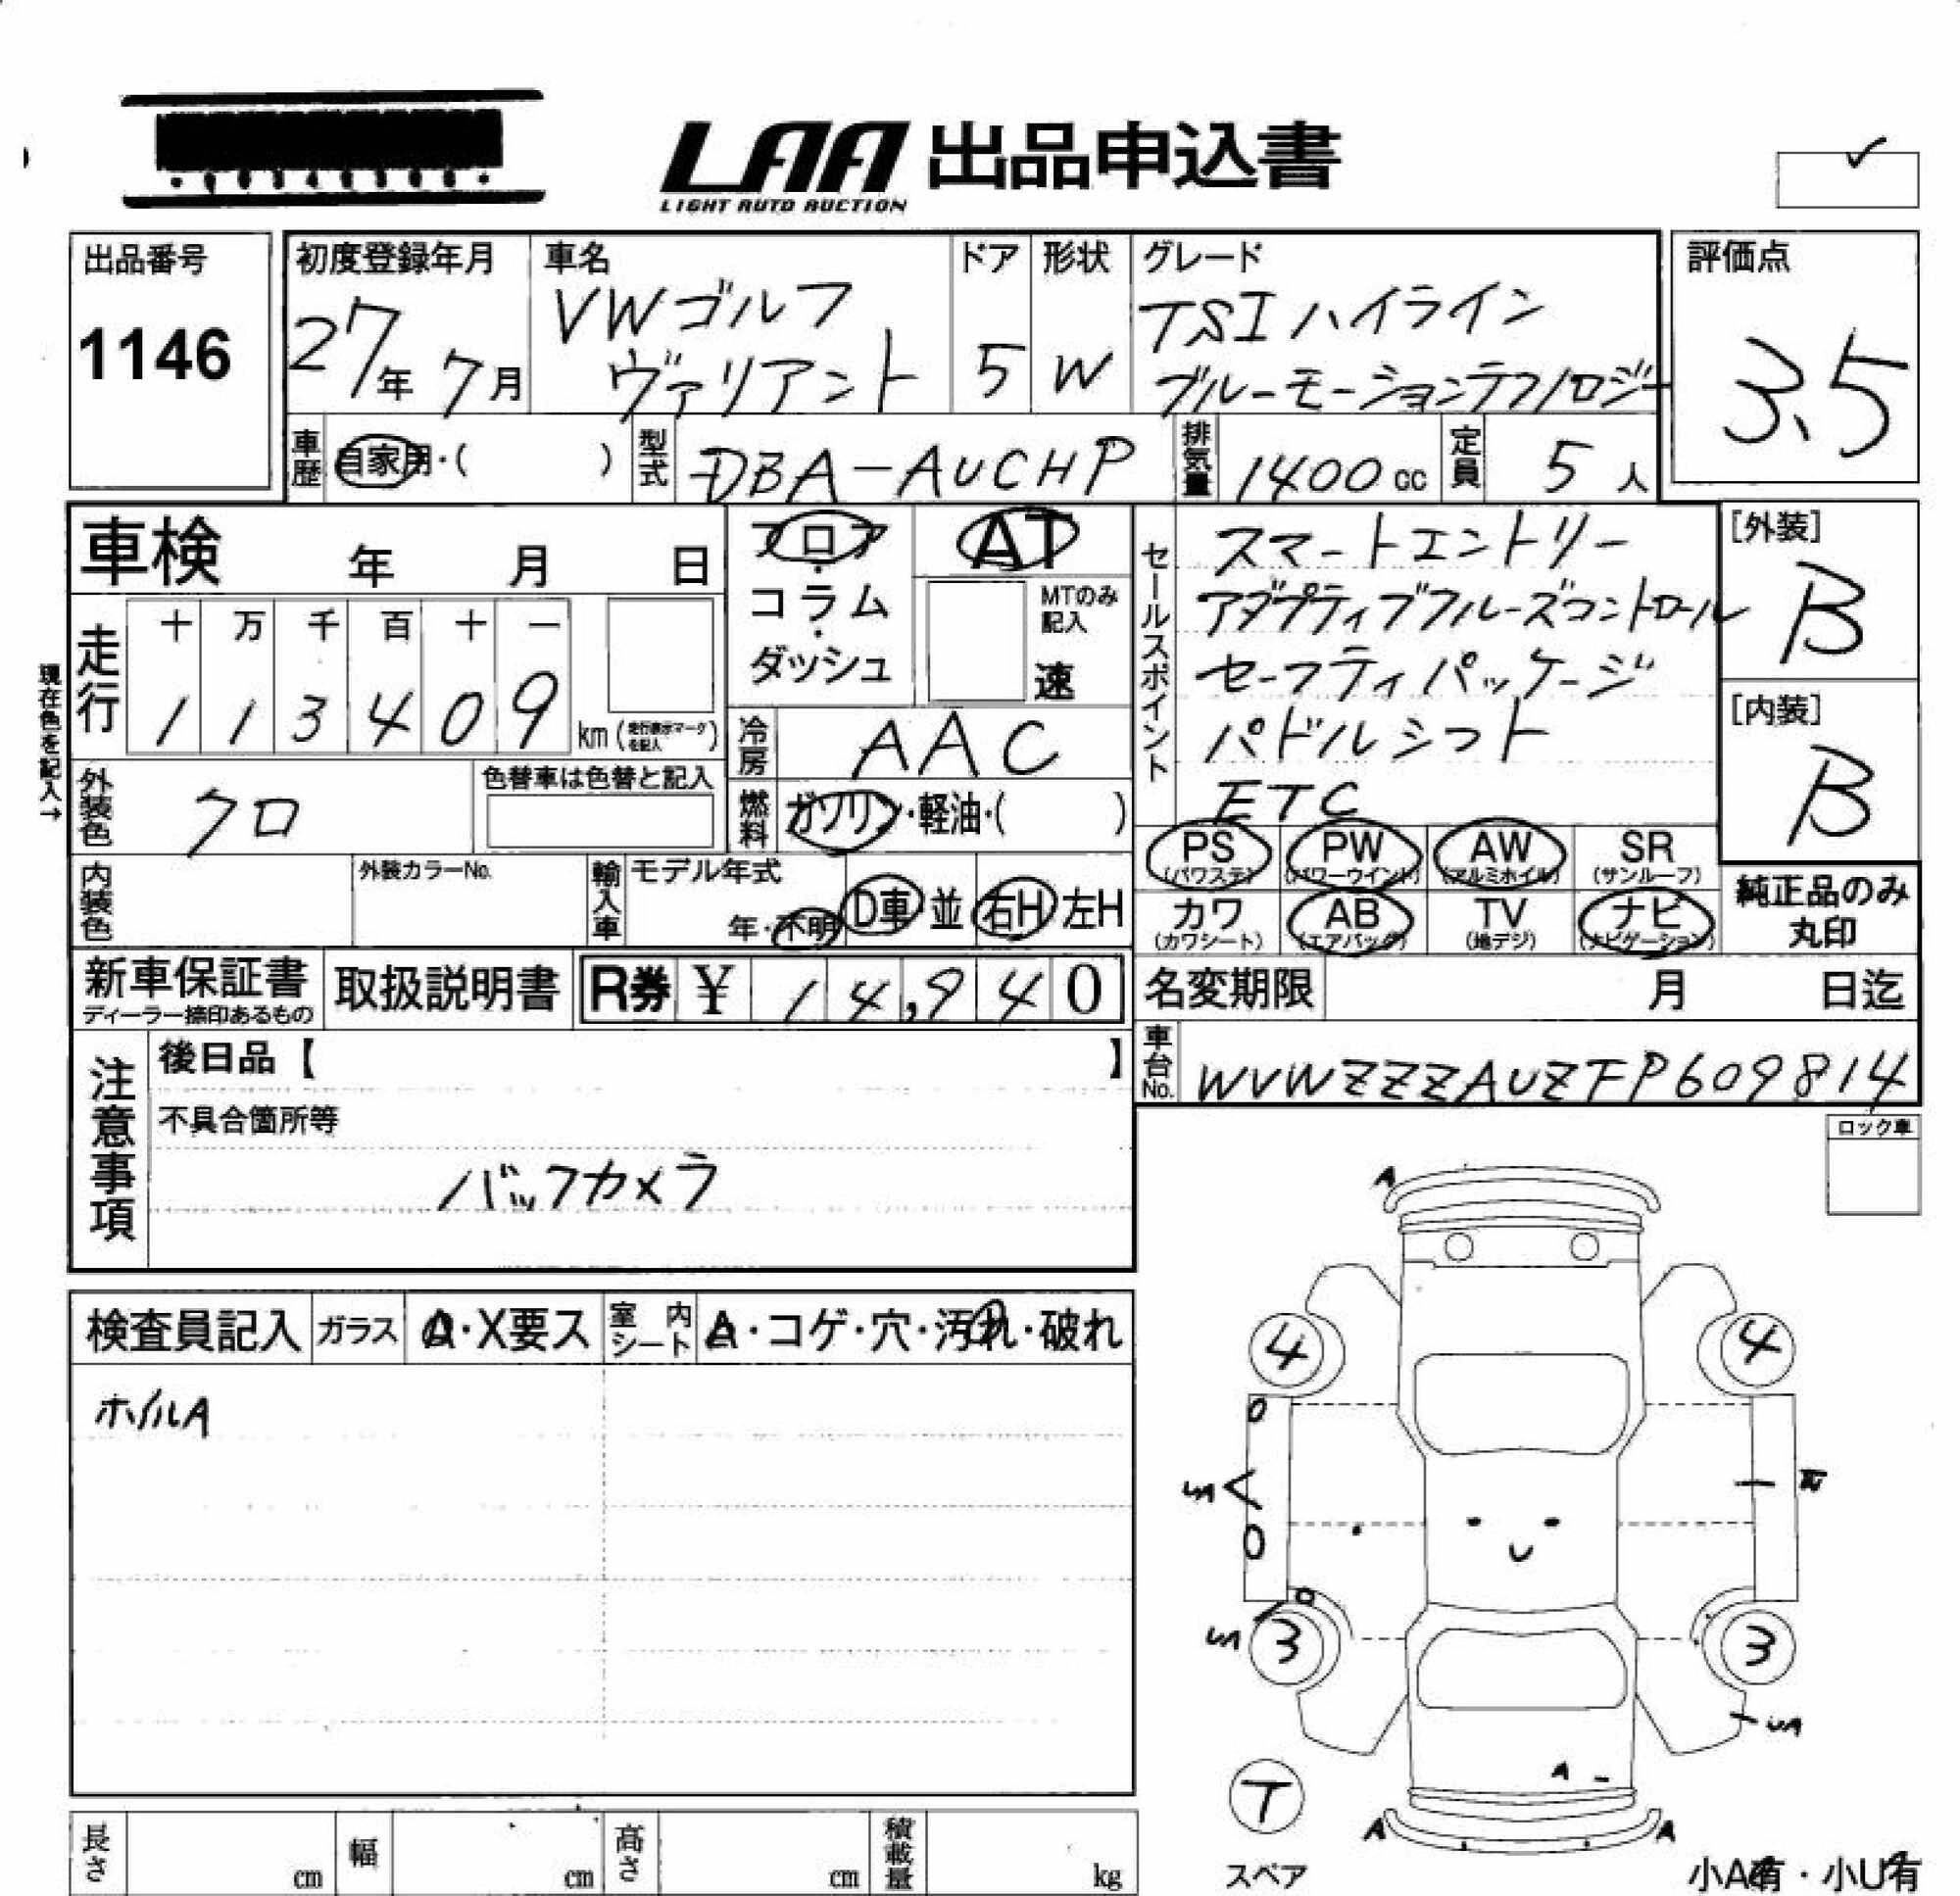 LAA 出品申込書
LIGHT AUTO AUCTION
出品番号
1146
初度登録年月
27年 7月
車名
VWゴルフ
ヴァリアント
ドア
5
形状
W
グレード
TSIハイライン
ブルーモーションテクノロジー
評価点
3.5
車歴
自家用・( )
型式
DBA-AUCHP
排気量
1400 cc
定員
5 人
車検 年 月 日
フロア
・
コラム
・
ダッシュ
AT
MTのみ
記入
速
セールスポイント
スマートエントリー
アダプティブクルーズコントロール
セーフティパッケージ
パドルシフト
ETC
[外装]
B
[内装]
B
現在色を記入→
走行
十 万 千 百 十 一
1 1 3 4 0 9
km (走行表示マークを記入)
冷房
AAC
外装色
クロ
色替車は色替と記入
燃料
ガソリン・軽油・( )
PS
(パワステ)
PW
(パワーウインド)
AW
(アルミホイル)
SR
(サンルーフ)
内装色
外装カラーNo.
輸入車
モデル年式
年・不明
D車・並
右H・左H
カワ
(カワシート)
AB
(エアバッグ)
TV
(地デジ)
ナビ
(ナビゲーション)
純正品のみ
丸印
新車保証書
ディーラー捺印あるもの
取扱説明書
R券 ¥ 14,940
名変期限 月 日迄
車台No.
WVWZZZAUZFP609814
注意事項
後日品【 】
不具合箇所等
バックカメラ
ロック車
検査員記入
ガラス
A・X要ス
室内シート
A・コゲ・穴・汚れ・破れ
ホイルA
A
4 4
SA
3 3
SA
SA
A
T
A A
スペア
小A有・小U有
長さ cm
幅 cm
高さ cm
積載量 kg